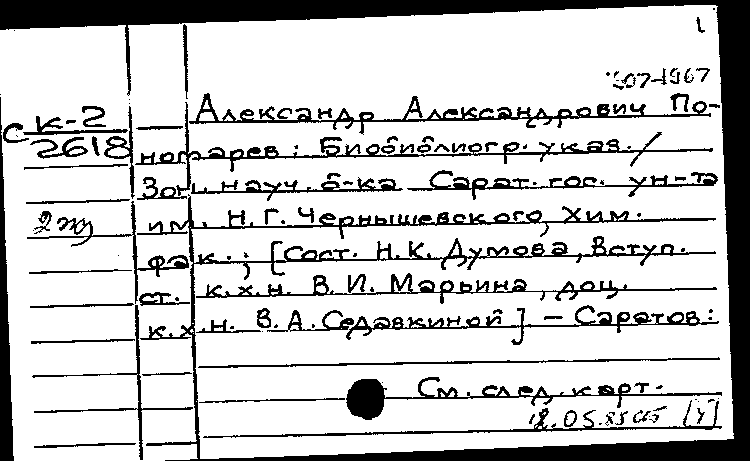 1
1907-1967
Александр Александрович По-
С К-2
2618
номарев: Биобиблиогр. указ. /
Зон. науч. б-ка Сарат. гос. ун-та
им. Н.Г. Чернышевского, Хим.
фак.; [Сост. Н.К. Думова, Вступ.
ст. к.х.н. В.И. Марьина, доц.
к.х.н. В.А. Седавкиной] - Саратов:
См. след. карт.